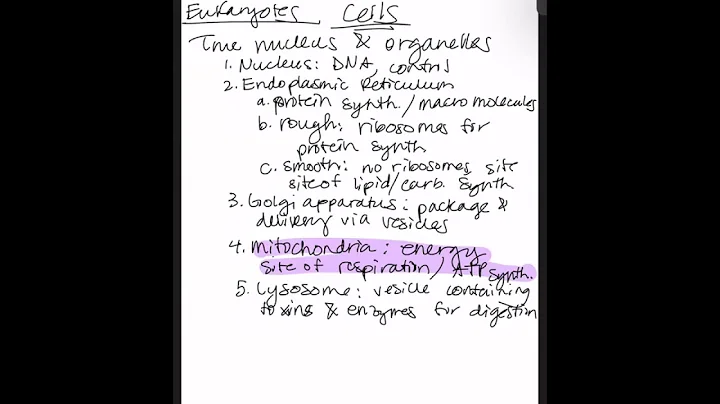 Eukaryotes Cells
True nucleus & organelles
1. Nucleus: DNA, control
2. Endoplasmic Reticulum
a. protein synth. / macromolecules
b. rough: ribosomes for
protein synth
c. smooth: no ribosomes, site
site of lipid/carb. synth
3. Golgi apparatus: package &
delivery via vesicles
4. mitochondria: energy
site of respiration/ ATP synth.
5. Lysosome: vesicle containing
toxins & enzymes for digestion